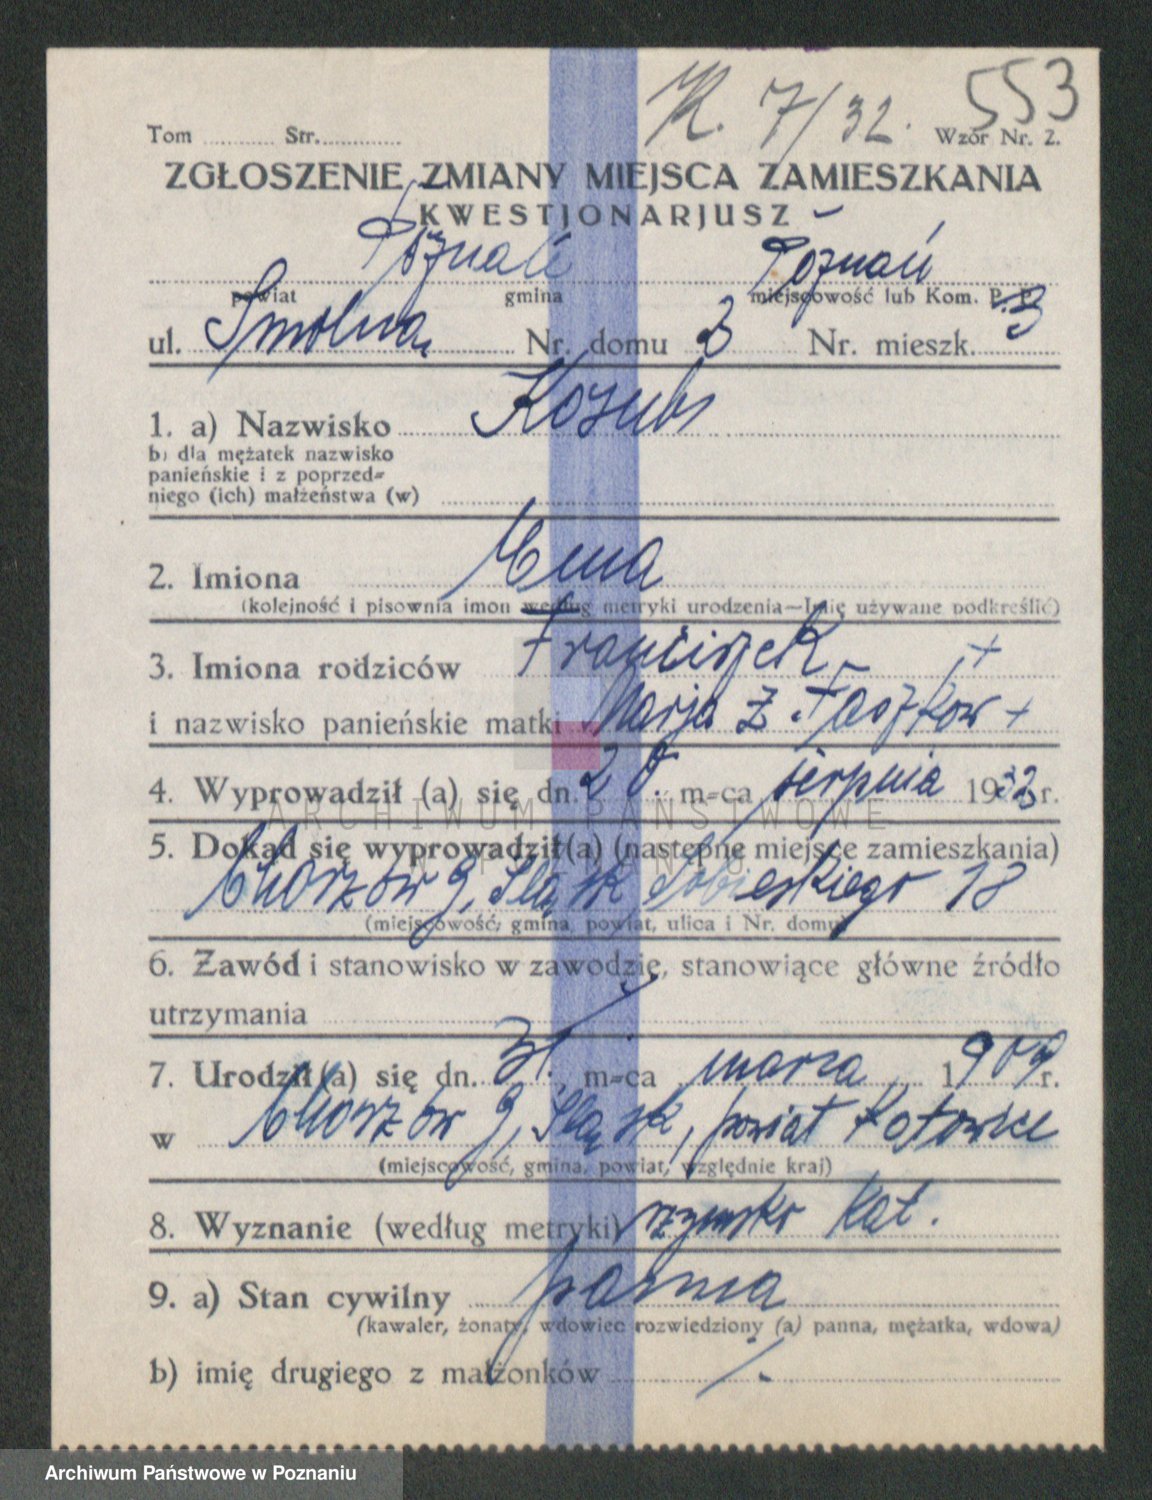 K. 7/32. 553
Tom ........... Str. ..............
Wzór Nr. 2.
ZGŁOSZENIE ZMIANY MIEJSCA ZAMIESZKANIA
KWESTJONARJUSZ
Poznań Poznań
powiat gmina miejscowość lub Kom. P. P.
ul. Smolna Nr. domu 3 Nr. mieszk. 3
1. a) Nazwisko Kozub
b) dla mężatek nazwisko
panieńskie i z poprzed=
niego (ich) małżeństwa (w)
2. Imiona Ema
(kolejność i pisownia imon według metryki urodzenia—Imię używane podkreślić)
3. Imiona rodziców Franciszek +
i nazwisko panieńskie matki Marja z +
4. Wyprowadził (a) się dn. 20. m=ca sierpnia 1932 r.
5. Dokąd się wyprowadził(a) (następne miejsce zamieszkania)
Chorzów Śląsk Sobieskiego 18
(miejscowość, gmina, powiat, ulica i Nr. domu)
6. Zawód i stanowisko w zawodzie, stanowiące główne źródło
utrzymania
7. Urodził (a) się dn. 31. m=ca marca 1909 r.
w Chorzów Śląsk, powiat Katowice
(miejscowość, gmina, powiat, względnie kraj)
8. Wyznanie (według metryki) rzymsko kat.
9. a) Stan cywilny panna
(kawaler, żonaty, wdowiec rozwiedziony (a) panna, mężatka, wdowa)
b) imię drugiego z małżonków
ARCHIWUM PAŃSTWOWE
W POZNANIU
Archiwum Państwowe w Poznaniu